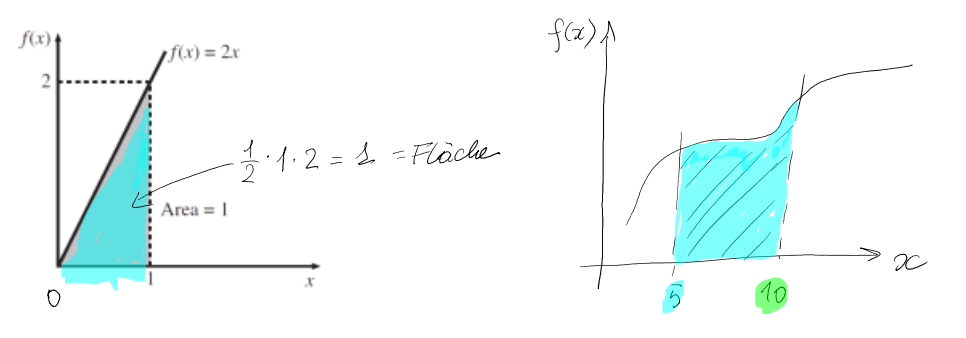 f(x)
f(x) = 2x
2
1/2 · 1 · 2 = 1 = Fläche
Area = 1
0
1
x
f(x)
x
5
10